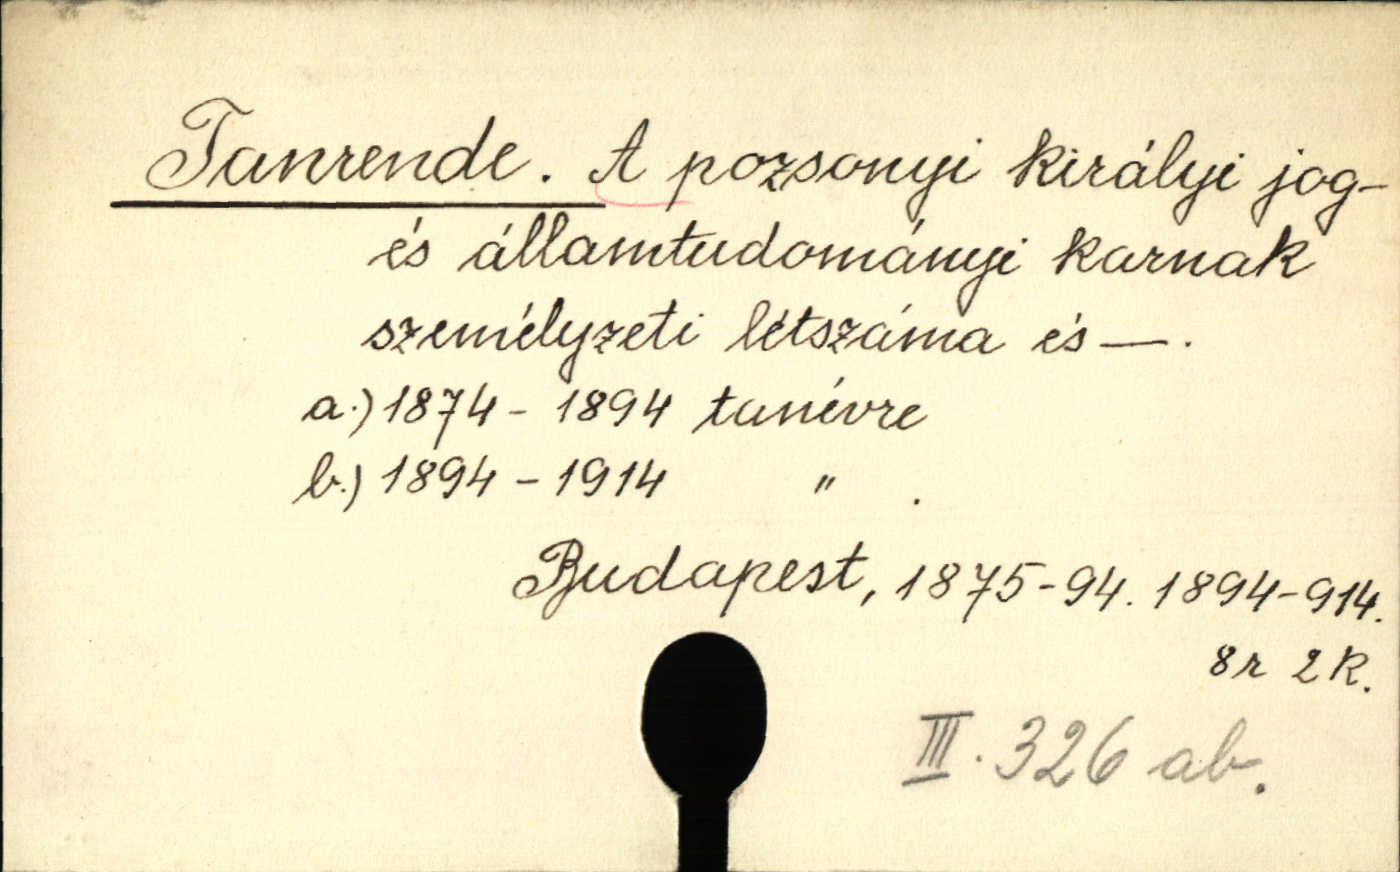 Tanrende. A pozsonyi királyi jog-
és államtudományi karnak
személyzeti létszáma és —.
a.) 1874 - 1894 tanévre
b.) 1894 - 1914 " .
Budapest, 1875-94. 1894-914.
8r 2 K.
III. 326 ab.